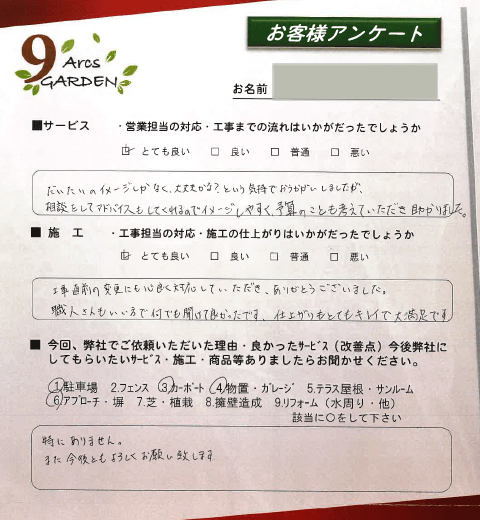 お客様アンケート
9 Arcs GARDEN
お名前
■サービス ・営業担当の対応・工事までの流れはいかがだったでしょうか
☑ とても良い □ 良い □ 普通 □ 悪い
だいたいのイメージしかなく、大丈夫かな?という気持でおうかがいしましたが、
相談をしてアドバイスもしてくれるのでイメージしやすく、予算のことも考えていただき助かりました。
■施 工 ・工事担当の対応・施工の仕上がりはいかがだったでしょうか
☑ とても良い □ 良い □ 普通 □ 悪い
工事直前の変更にも心良く対応していただき、ありがとうございました。
職人さんもいい方で何でも聞けて良かったです、仕上がりもとてもキレイで大満足です
■ 今回、弊社でご依頼いただいた理由・良かったサービス（改善点）今後弊社に
してもらいたいサービス・施工・商品等ありましたらお聞かせください。
①駐車場 2.フェンス ③カーポート ④物置・ガレージ 5.テラス屋根・サンルーム
⑥アプローチ・塀 7.芝・植栽 8.擁壁造成 9.リフォーム（水周り・他）
該当に○をして下さい
特にありません。
また今後ともよろしくお願い致します